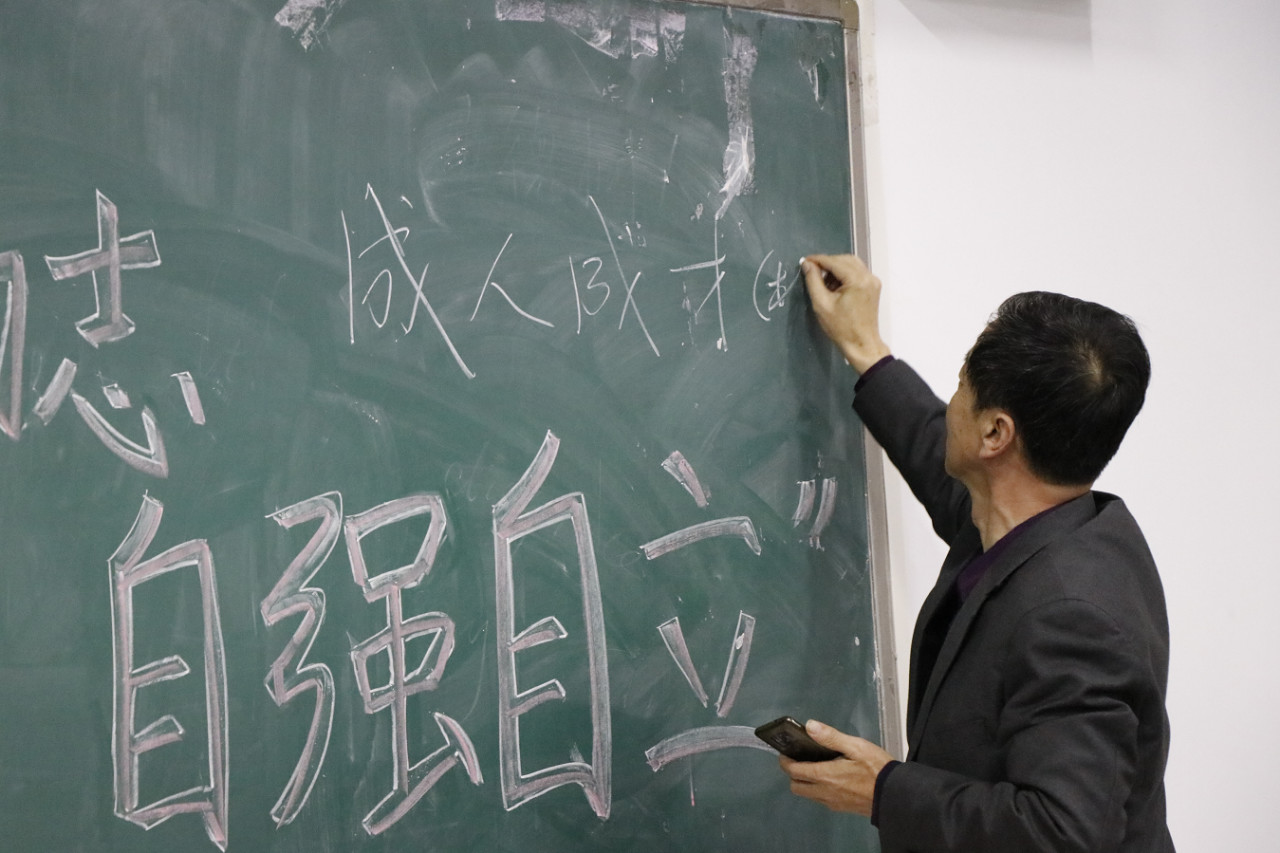 志 成人成才
自强自立”